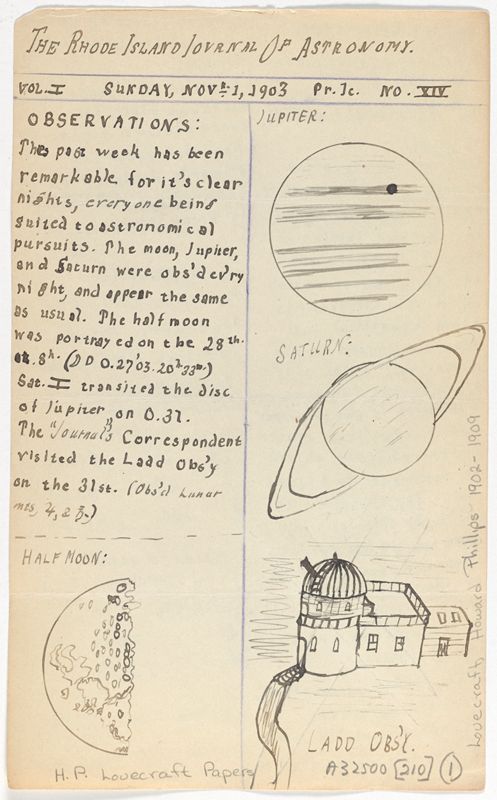 THE RHODE ISLAND JOURNAL OF ASTRONOMY.
VOL. I SUNDAY, NOV R. 1, 1903 Pr. 1c. NO. XIV
OBSERVATIONS:
This past week has been
remarkable for it's clear
nights, everyone being
suited to astronomical
pursuits. The moon, Jupiter,
and Saturn were obs'd ev'ry
night, and appear the same
as usual. The half moon
was portrayed on the 28th.
at 8h. (D D O. 27'03. 20h33m.)
Sat. I transited the disc
of Jupiter on O.31.
The "Journal's" Correspondent
visited the Ladd Obs'y
on the 31st. (Obs'd Lunar
mts, ♃, & ♄.)
HALF MOON:
JUPITER:
SATURN:
LADD OBS'Y.
H.P. Lovecraft Papers
A32500 [210] 1
Lovecraft, Howard Phillips 1902-1909